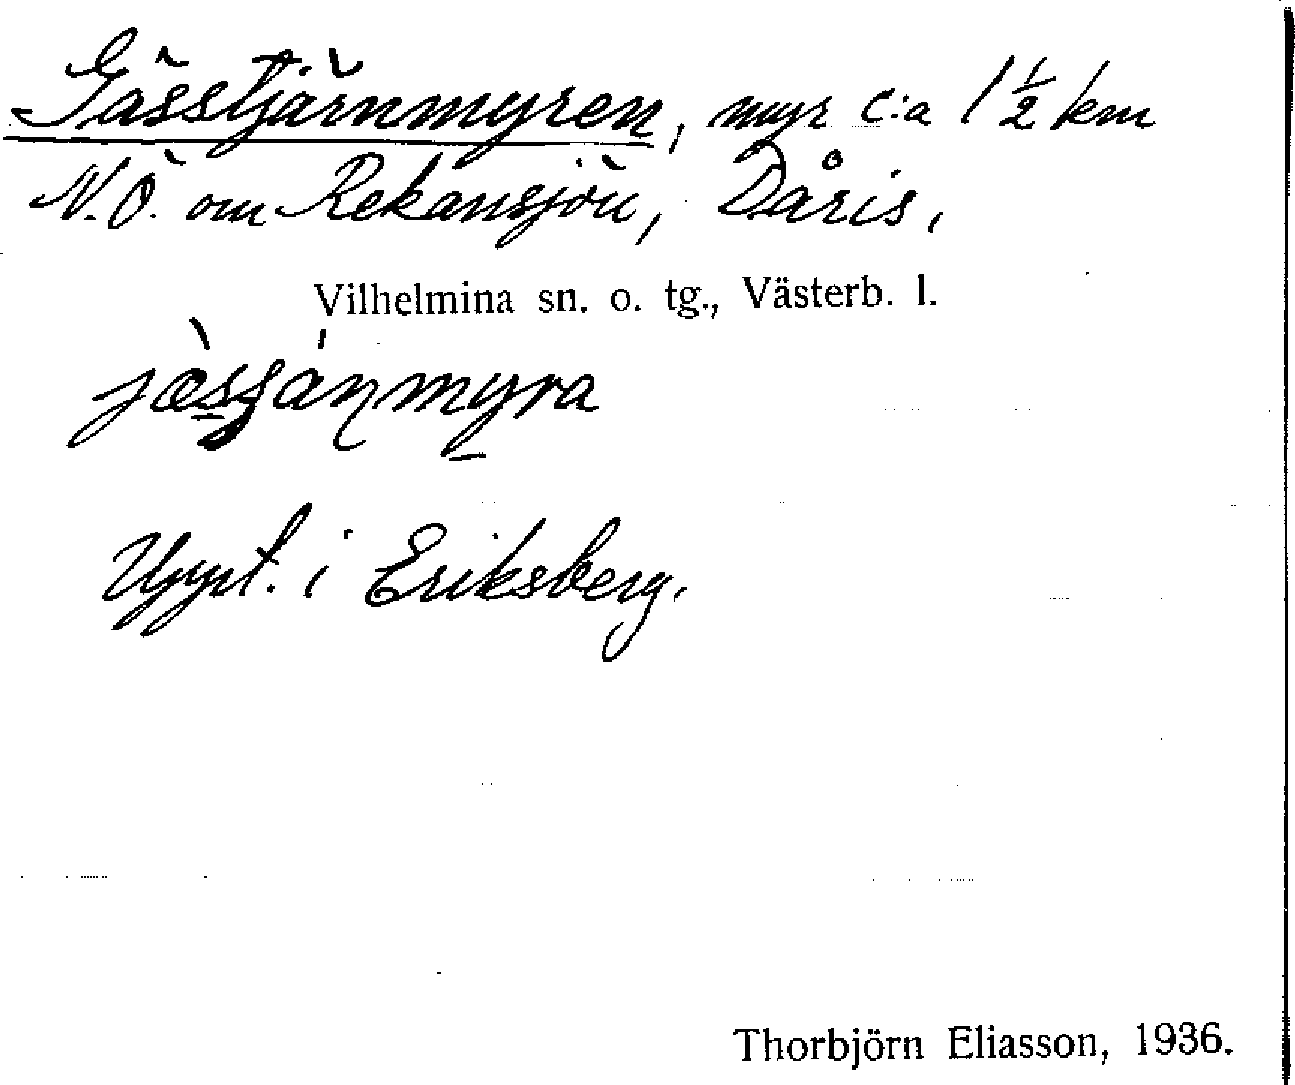 Gässtjärnmyren, myr c:a 1½ km
N.Ö. om Rekansjön, Dåris,
Vilhelmina sn. o. tg., Västerb. l.
Uppt. i Eriksberg.
Thorbjörn Eliasson, 1936.